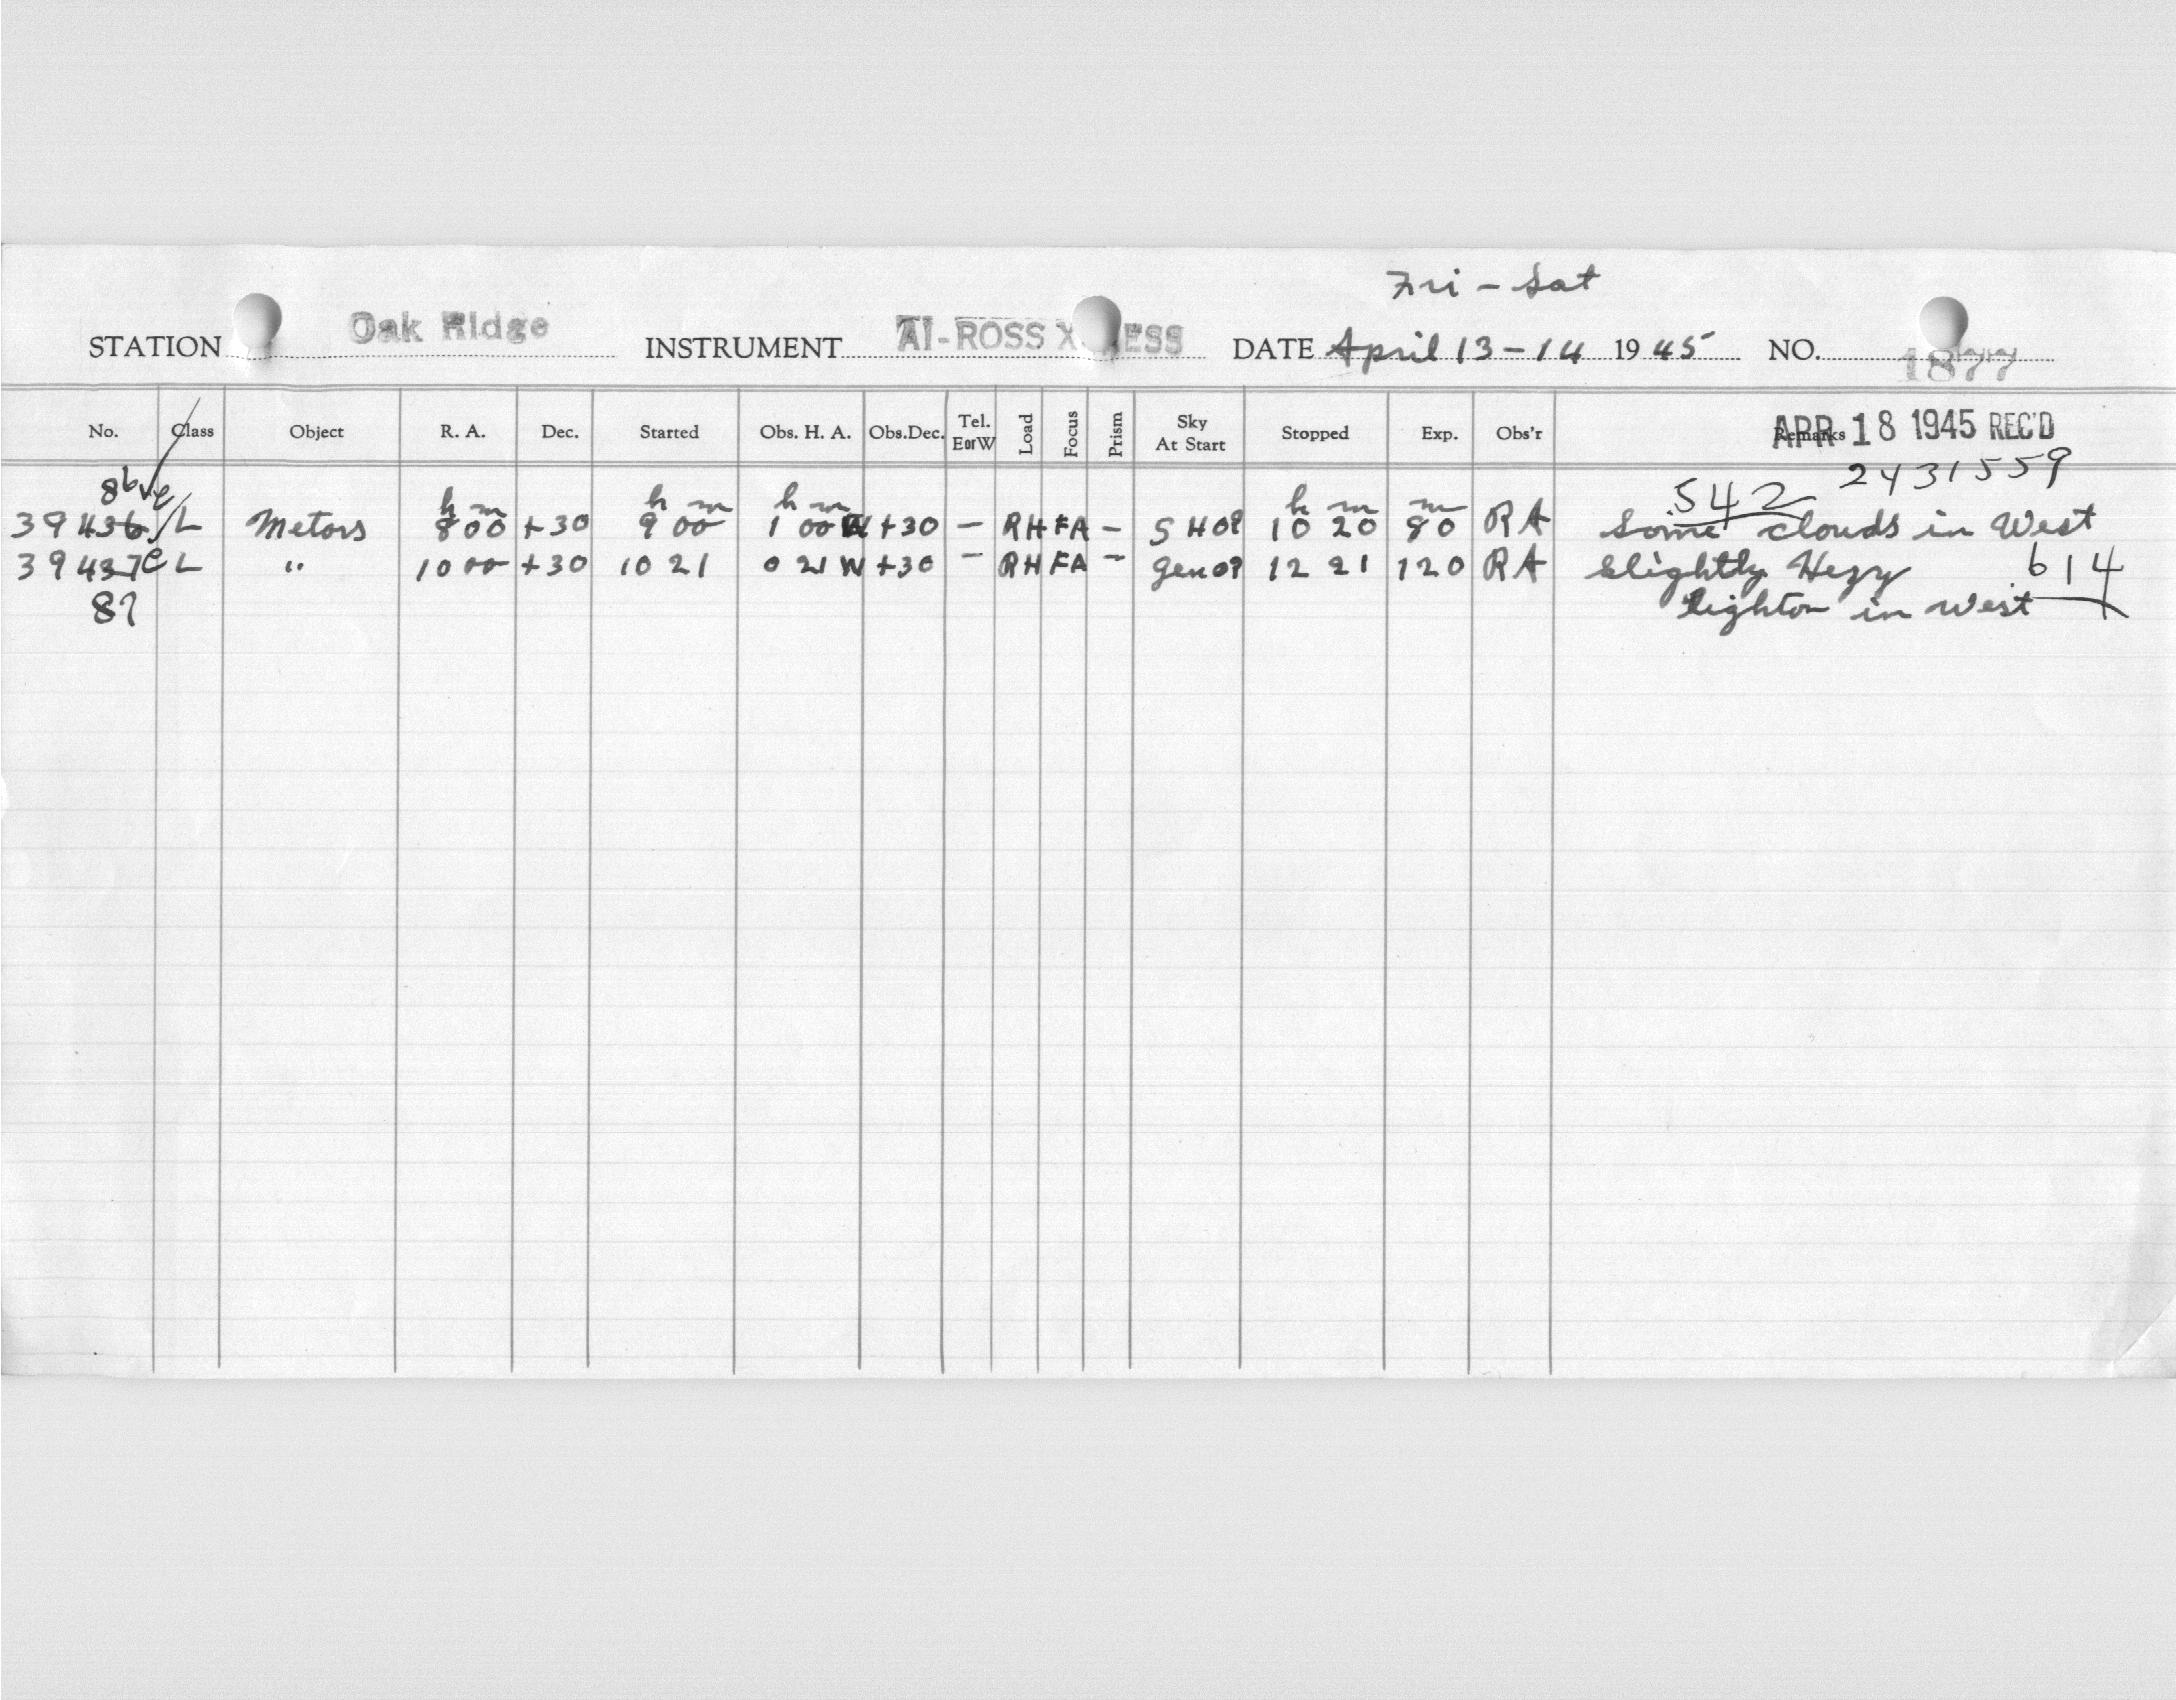 Fri - Sat
STATION Oak Ridge INSTRUMENT AI-ROSS X ESS DATE April 13-14 1945 NO. 1877
No. Class Object R. A. Dec. Started Obs. H. A. Obs.Dec. Tel. EorW Load Focus Prism Sky At Start Stopped Exp. Obs'r Remarks APR 18 1945 REC'D
2431559
86 h m h m h m h m m 542
39436 L Metors 8 00 +30 9 00 1 00 W +30 - RH FA - 10 20 80 RA Some clouds in West
39437 e L " 10 00 +30 10 21 0 21 W +30 - RH FA - 12 21 120 RA Slightly Hezy .614
87 in west